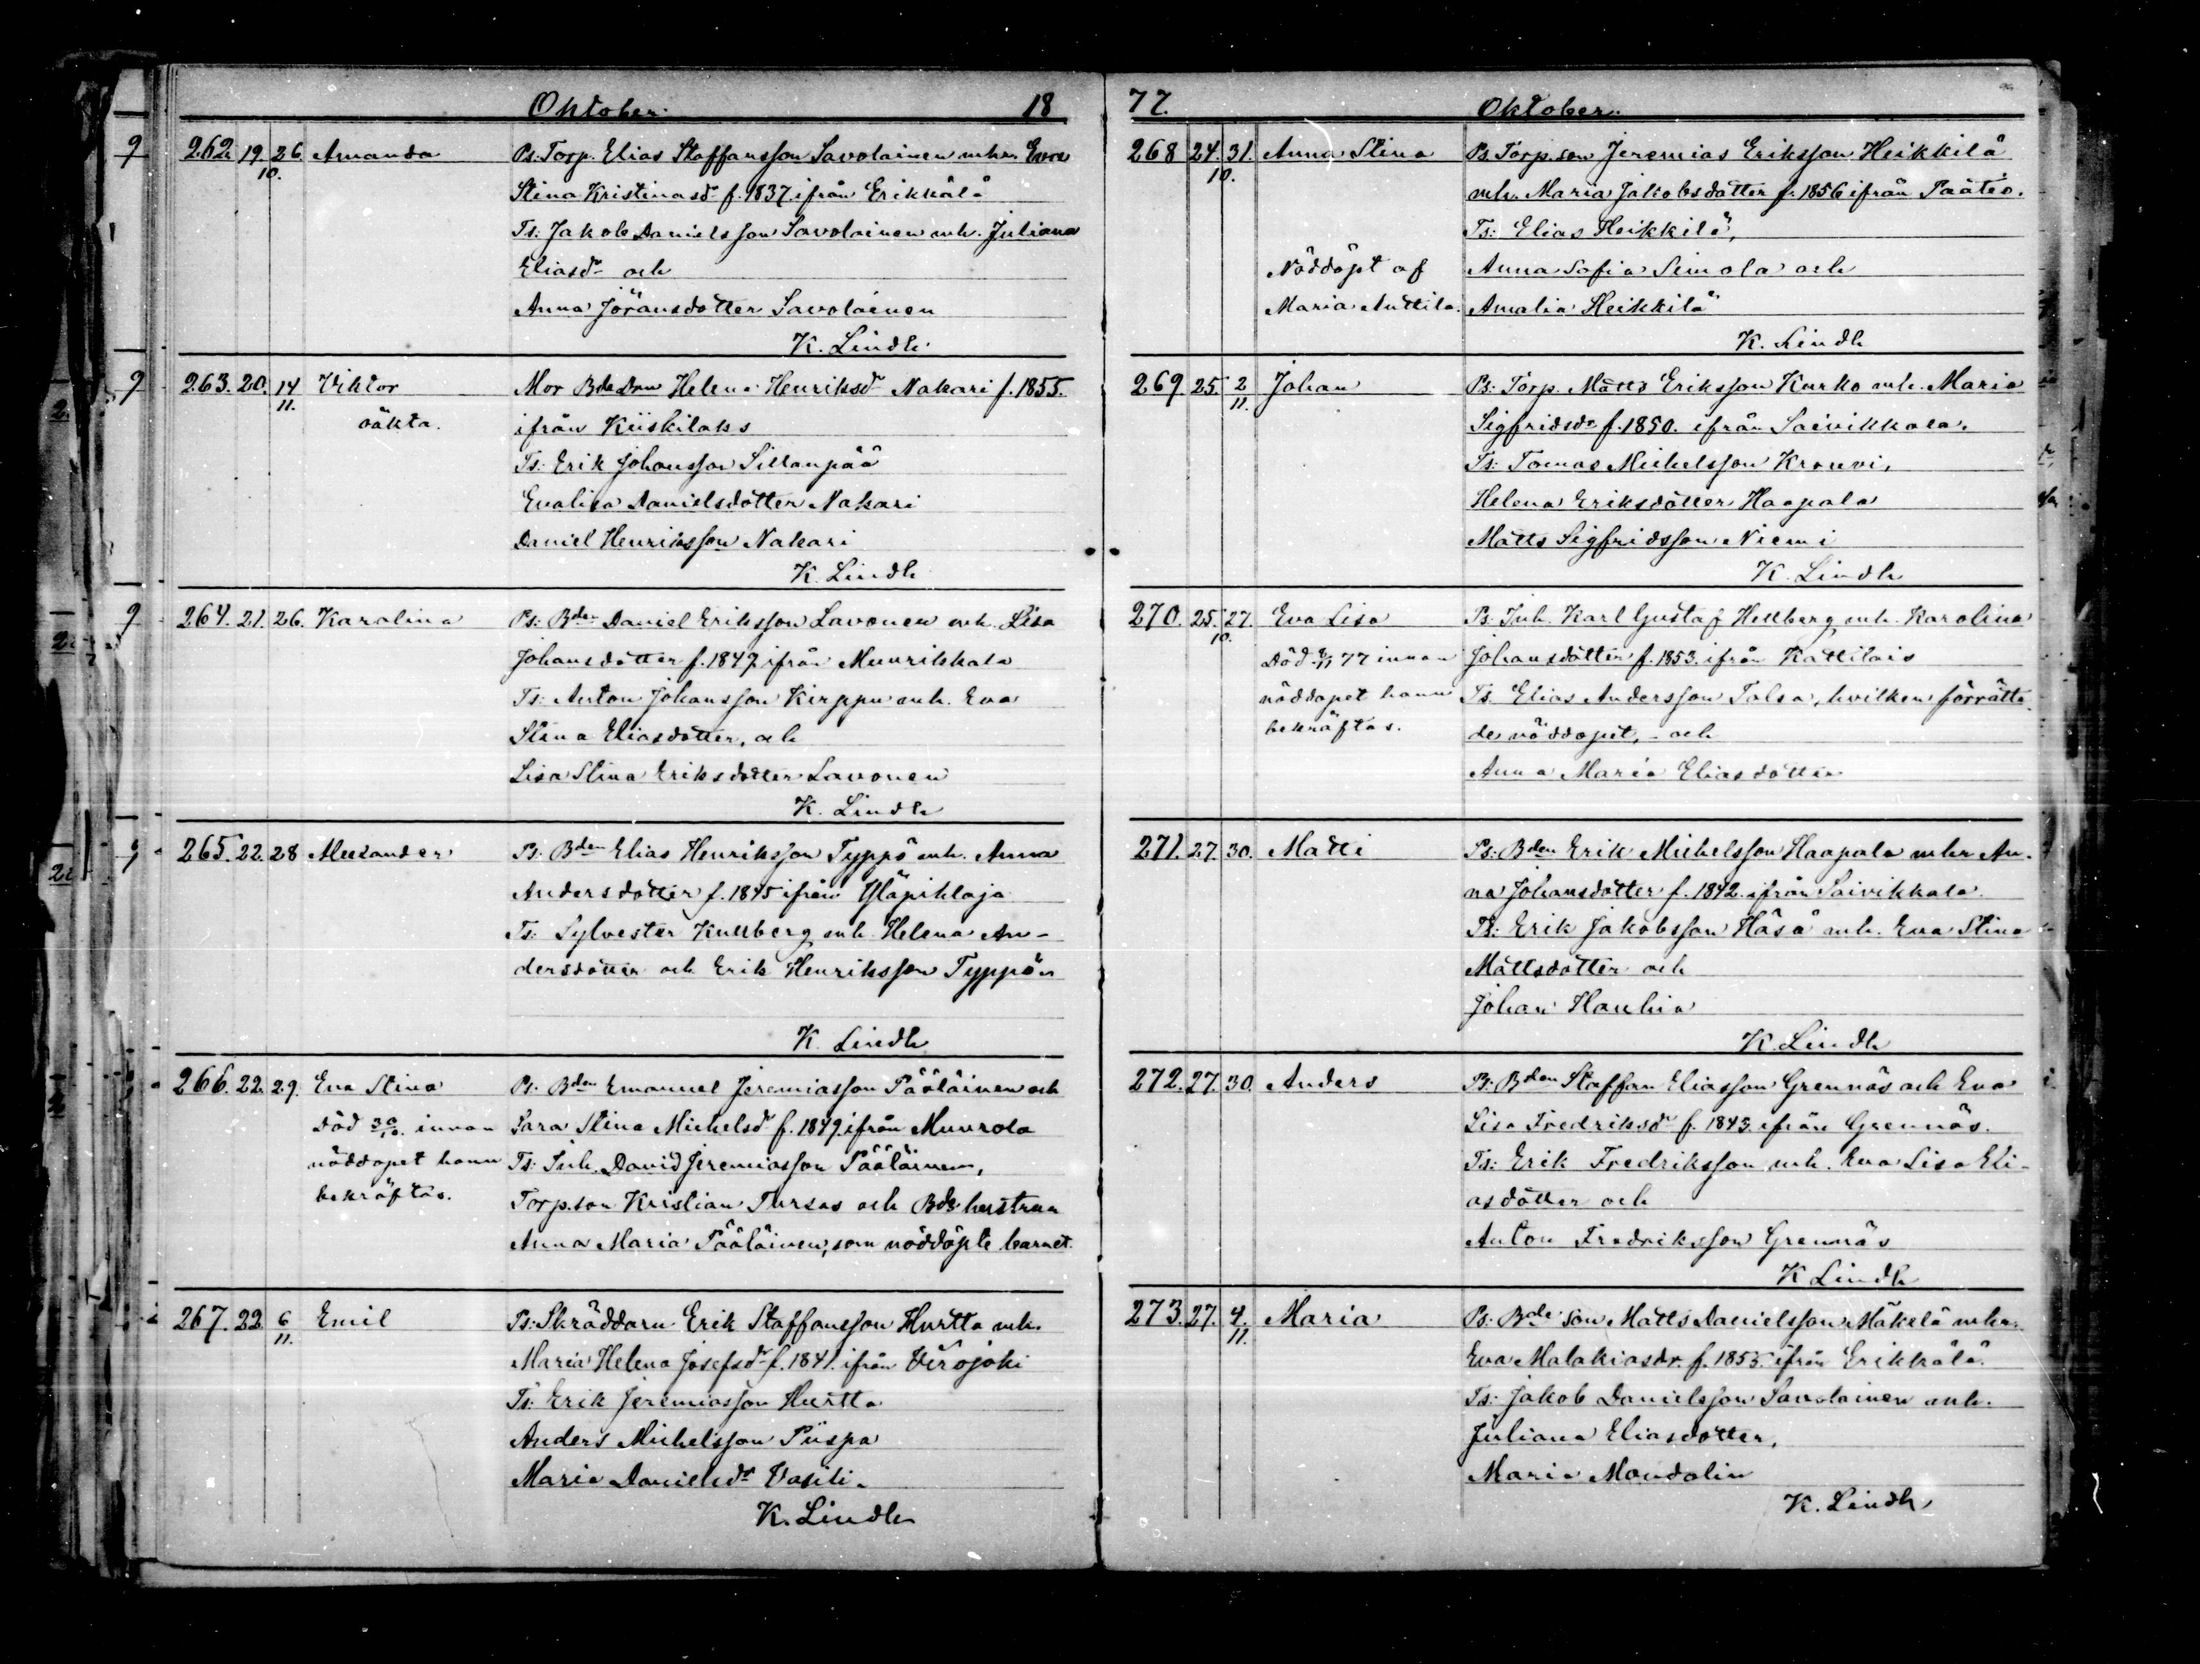 Oktober. 18
262. 19. 26. Amanda Ps. Torp. Elias Staffansson Savolainen mhu Eva
10. Stina Kristinasdr f. 1837. ifrån Erikkälä
Ts: Jakob Danielsson Savolainen mh. Juliana
Eliasdr och
Anna Jöransdotter Savolainen
K. Lindh
263. 20. 14 Viktor Mor Bde Helena Henriksdr Nakari f. 1855.
11. oäkta. ifrån Kiiskilaks
Ts: Erik Johansson Sillanpää
Evalisa Danielsdotter Nakari
Daniel Henriksson Nakari
K. Lindh
264. 21. 26. Karolina Ps: Bden Daniel Eriksson Lavonen mh. Lisa
Johansdotter f. 1847 ifrån Muurikkala
Ts: Anton Johansson Kirppu mh. Eva
Stina Eliasdotter, och
Lisa Stina Eriksdotter Lavonen
K. Lindh
265. 22. 28 Alexander Ps: Bden Elias Henriksson Typpö mh. Anna
Andersdotter f. 1845 ifrån Yläpihlaja
Ts: Sylvester Kullberg mh. Helena An-
dersdotter och Erik Henriksson Typpön
K. Lindh
266. 22. 29. Eva Stina Ps. Bden Emanuel Jeremiasson Pääläinen och
Död 30/10. innan Sara Stina Michelsdr f. 1849. ifrån Muurola
nöddopet hann Ts: Inh. David Jeremiasson Pääläinen,
bekräftas. Torp.son Kristian Tursas och Bde. hustrun
Anna Maria Pääläinen, som nöddöpte barnet.
267. 22 6 Emil Ps: Skräddaren Erik Staffansson Hurtta mh.
11. Maria Helena Josefsdr f. 1841. ifrån Virojoki
Ts: Erik Jeremiasson Hurtta
Anders Michelsson Piispa
Maria Danielsdr Vasili.
K. Lindh
77. Oktober.
268 24. 31. Anna Stina Ps Torp.son Jeremias Eriksson Heikkilä
10. mh. Maria Jakobsdotter f. 1856 ifrån Päätiö.
Ts: Elias Heikkilä,
Nöddöpt af Anna Sofia Simola och
Maria Anttila. Amalia Heikkilä
K. Lindh
269. 25. 2 Johan Ps: Torp. Matts Eriksson Kurko mh. Maria
11. Sigfridsdr f. 1850. ifrån Saivikkala.
Ts: Tomas Michelsson Krouvi,
Helena Eriksdotter Haapala
Matts Sigfridsson Niemi
K. Lindh
270. 25. 27. Eva Lisa Ps. Inh. Karl Gustaf Hellberg mh. Karolina
10.
Död 8/11 77 innan Johansdotter f. 1853. ifrån Kattilais
nöddopet hann Ts. Elias Andersson Talsa, hvilken förrätta-
bekräftas. de nöddopet, - och
Anna Maria Eliasdotter
271. 27. 30. Matti Ps: Bden Erik Michelsson Haapala mhu An-
na Johansdotter f. 1842. ifrån Saivikkala.
Ts: Erik Jakobsson Häsä mh. Eva Stina
Mattsdotter och
Johan Hauhia
K. Lindh
272. 27. 30. Anders Ps: Bden Staffan Eliasson Grennäs och Eva
Lisa Fredriksdr f. 1843. ifrån Grennäs.
Ts: Erik Fredriksson mh. Eva Lisa Eli-
asdotter och
Anton Fredriksson Grennäs
K Lindh
273. 27. 4. Maria Ps. Bde. son Matts Danielsson Mäkelä mhu.
11. Eva Malakiasdr. f. 1855. ifrån Erikkälä.
Ts: Jakob Danielsson Savolainen mh.
Juliana Eliasdotter,
Maria Mandolin
K. Lindh